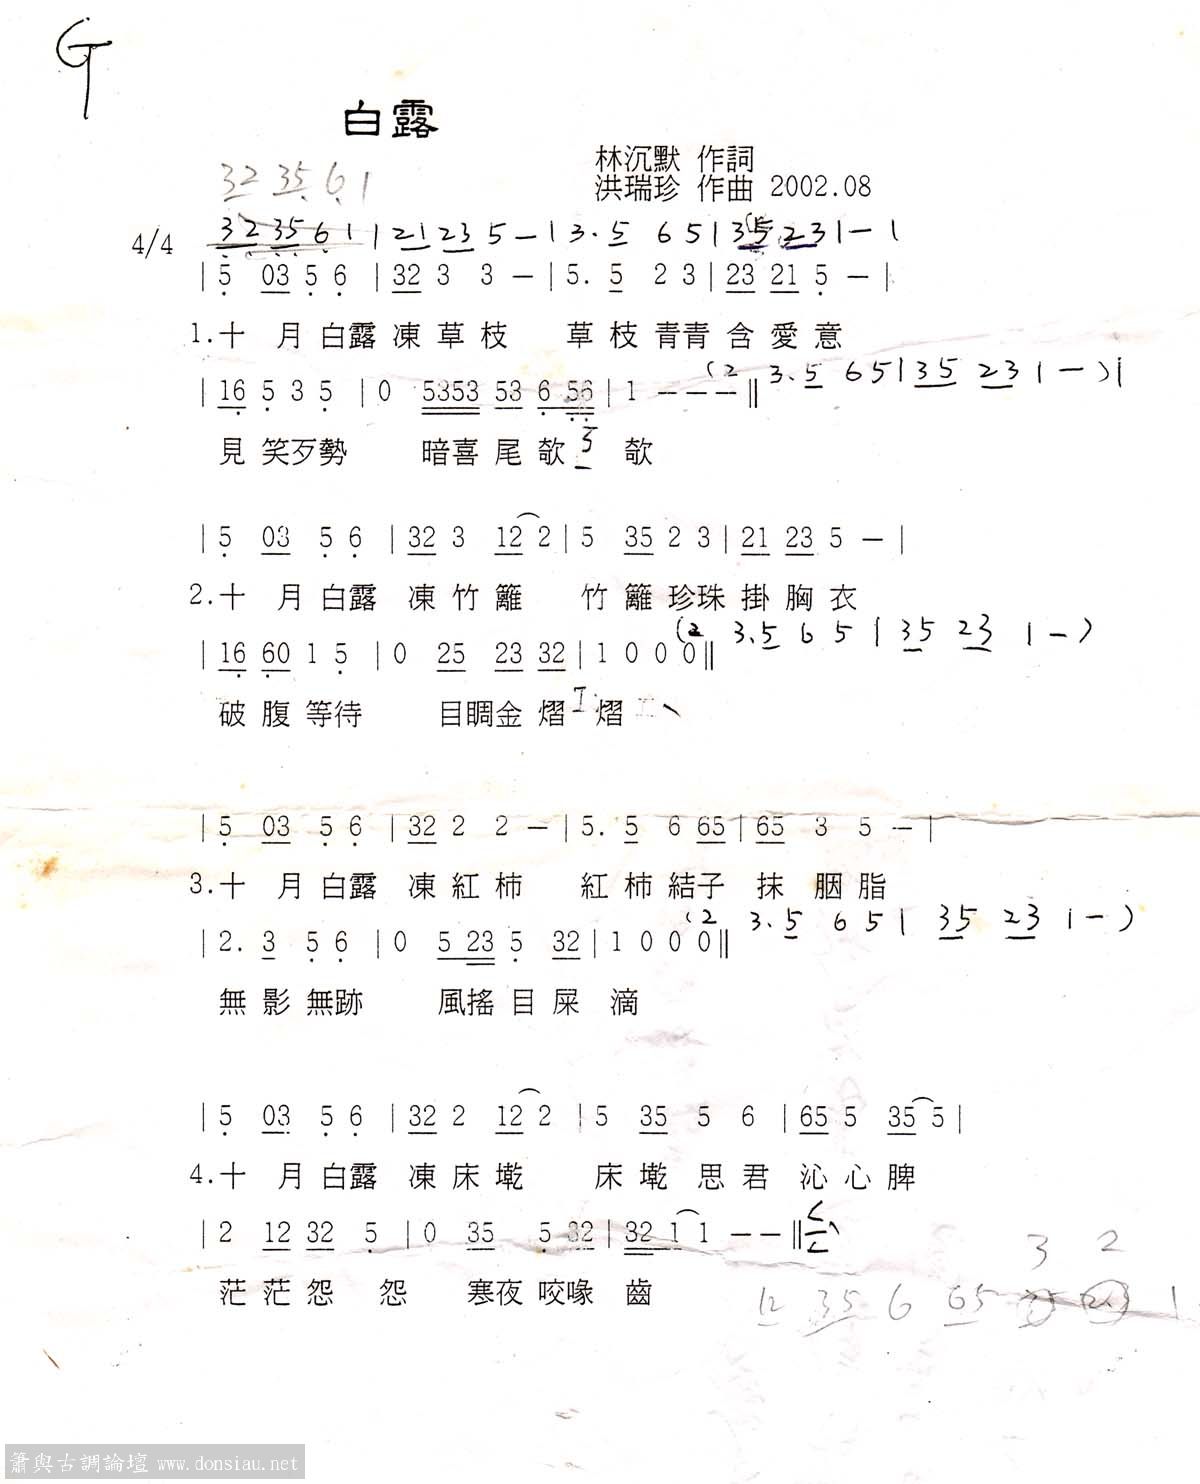 G
白露
林沉默 作詞
32 35 6 1
洪瑞珍 作曲 2002.08
4/4 32 35 6 1 | 21 23 5 — | 3. 5 6 5 | 35 23 1 — |
| 5 03 5 6 | 32 3 3 — | 5. 5 2 3 | 23 21 5 — |
1. 十 月 白露 凍 草 枝 草 枝 青青 含 愛 意
| 16 5 3 5 | 0 5353 53 6 56 | 1 — — — ‖ (2 3. 5 6 5 | 35 23 1 — ) |
見 笑歹勢 暗喜 尾 欹 欹
| 5 03 5 6 | 32 3 12 2 | 5 35 2 3 | 21 23 5 — |
2. 十 月 白露 凍 竹 籬 竹 籬 珍珠 掛 胸 衣
| 16 60 1 5 | 0 25 23 32 | 1 0 0 0 ‖ (2 3. 5 6 5 | 35 23 1 — )
破 腹 等待 目睭金 熠 熠
| 5 03 5 6 | 32 2 2 — | 5. 5 6 65 | 65 3 5 — |
3. 十 月 白露 凍 紅 柿 紅 柿 結子 抹 胭 脂
| 2. 3 5 6 | 0 5 23 5 32 | 1 0 0 0 ‖ (2 3. 5 6 5 | 35 23 1 — )
無 影 無跡 風搖 目 屎 滴
| 5 03 5 6 | 32 2 12 2 | 5 35 5 6 | 65 5 35 5 |
4. 十 月 白露 凍 床 墘 床 墘 思 君 沁 心 脾
| 2 12 32 5 | 0 35 5 32 | 32 1 1 — — ‖
3 2
茫 茫 怨 怨 寒夜 咬喙 齒
12 35 6 65 1
簫與古調論壇 www.donsiau.net